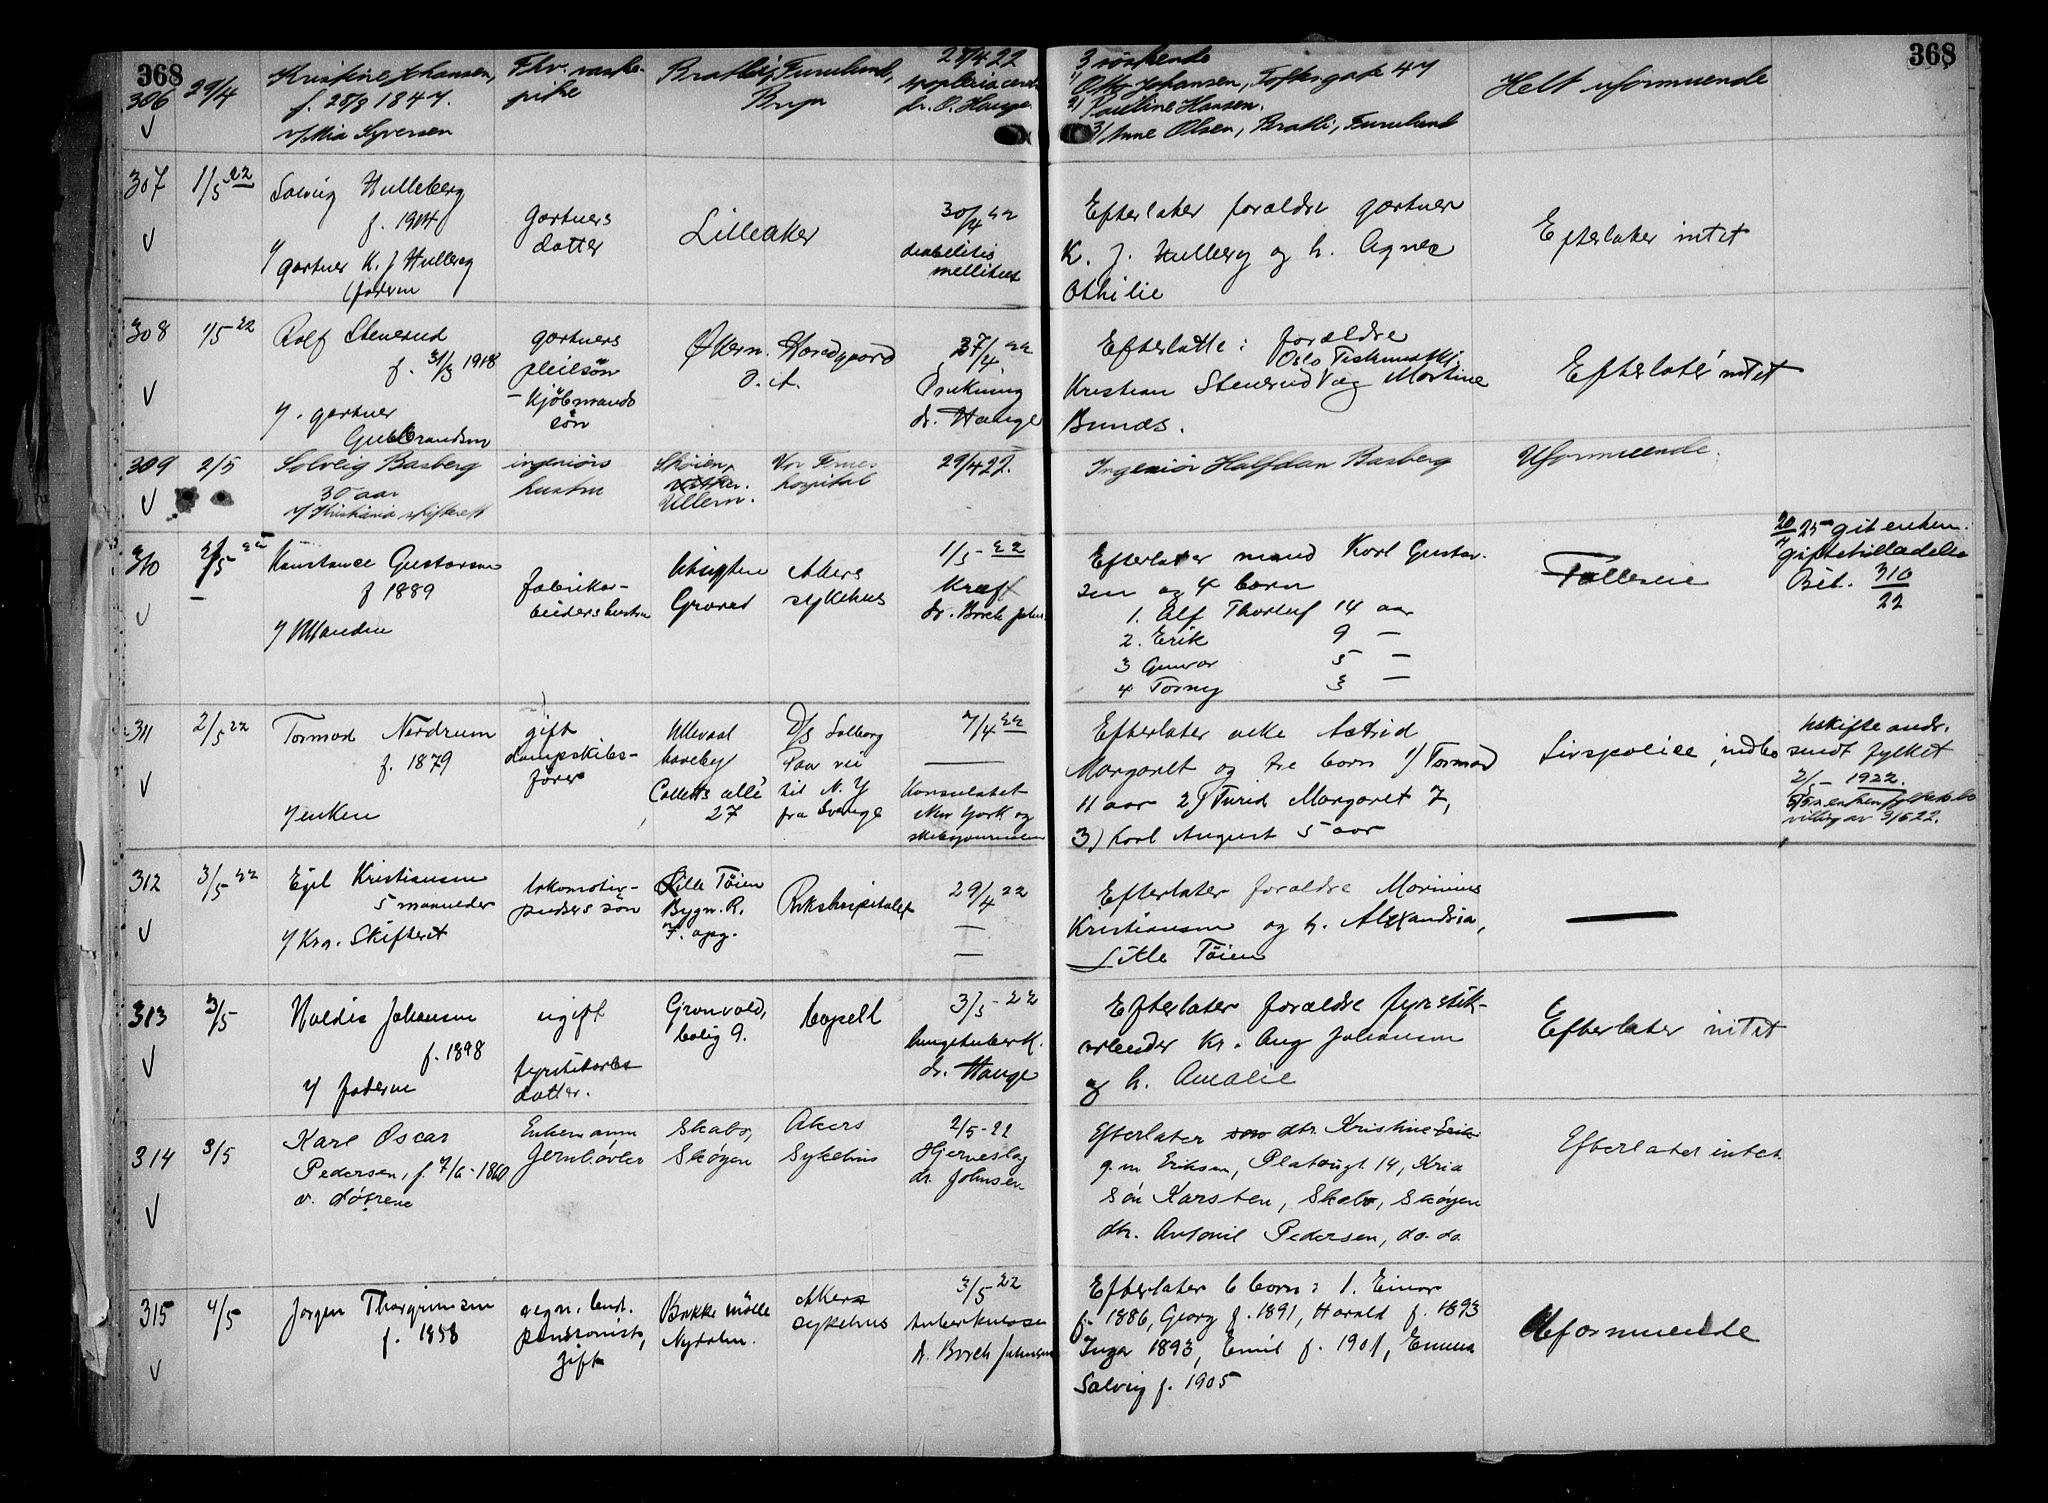 368
368
306
29/4
Kristine Johansen,
f. 28/9 1847.
v/ Mia Syversen
Fhv. vaske-
pike
Bratli, Furulund,
Bryn
28/4 22
dr. O. Hauge
3 söskende
1) Otto Johansen, Toftesgade 47
2) Pauline Hansen.
3) Anne Olsen, Bratli, Furulund
Helt uformuende
307
1/5 22
Solveig Hulleberg
f. 1904
v/ gartner K. J. Hulleberg
faderen
Gartners
datter
Lilleaker
30/4 22
diabetitis
mellitus
Efterlater forældre gartner
K. J. Hulleberg og h. Agnes
Othilie
Efterlater intet
308
1/5 22
Rolf Stenerud
f. 31/3 1918
v/ gartner
Gulbrandsen
gartners
pleiesøn
- Kjöbmands
søn
Økern.
Ø. A.
27/4 22
Drukning
dr. Hauge
Efterlatte: forældre
Kristian Stenerud og Martine
Bunæs.
Efterlater intet
309
2/5
Solveig Basberg
30 aar
v/ Kristiania skifterett
ingeniørs
hustru
Skøien,
Ullern.
Vor Frues
hospital
29/4 22.
Ingeniör Halfdan Basberg
Uformuende.
310
2/5 22
Konstance Gustavsen
f 1889
v/ Manden
fabrikar-
beidershustru
Utsigten
Grorud
Akers
sykehus
1/5 - 22
Kræft
dr. Borch Johns.
Efterlater mand Karl Gustav-
sen og 4 born
1. Alf Thorleif 14 aar
2. Erik 9 -
3 Gunvor 5 -
4 Torny 3 -
Fælleseie
20/4 25 git enkem.
giftetilladelse
Bil. 310/22
311
2/5 22
Tormod Nordrum
f. 1879
v/ enken
gift
dampskibs-
fører
Ullevaal
haveby
Colletts allé
27
D/S Solborg
Paa vei
til N. Y
fra
7/4 22
Konsulatet
New York og
skibsjournalen
Efterlater enke Astrid
Margaret og tre born 1) Tormod
11 aar 2) Turid Margaret 7,
3) Karl August 5 aar
Livspolice, indbo
Uskifte andr.
sendt fylket
2/5 - 1922.
312
3/5 22
Egil Kristiansen
5 maaneder
v/ Kra. Skifteret
lokomotiv-
pudsers søn
Lille Töien
Bygn. R.
7. opg.
Rikshospitalet
29/4 22
Efterlater forældre Marinius
Kristiansen og h. Alexandria,
Lille Töien
313
3/5
Haldis Johansen
f. 1898
v/ faderen
ugift
fyrstikarb.
datter.
Grønvold,
bolig 9.
Capell
3/5 - 22
lungetuberk.
dr. Hauge
Efterlater forældre fyrstik-
arbeider Kr. Aug Johansen
og h. Amalie
Efterlater intet
314
3/5
Karl Oscar
Pedersen, f. 7/6 - 1860
v. døtrene
Enkemann
Jernhøvler
Skabo,
Skøyen
Akers
Sykehus
2/5 - 22
Hjerneslag
dr. Johnsen
Efterlater dtr. Kristine
g. m Eriksen, Platougt 14, Kria
Søn Karsten, Skabo, Skøyen
dtr. Antonie Pedersen, do. do
Efterlater intet.
315
4/5
Jørgen Thorgrimsen
f. 1858
pensionist,
gift
Bakke mølle
Nydalen.
Akers
sykehus
3/5 22
tuberkulose
dr. Borch Johnsen
Efterlater 6 born: 1. Einar
f. 1886, Georg f. 1891, Harald f. 1893
Inga 1893, Emil f. 1901, Emma
Solveig f. 1905
Uformuende